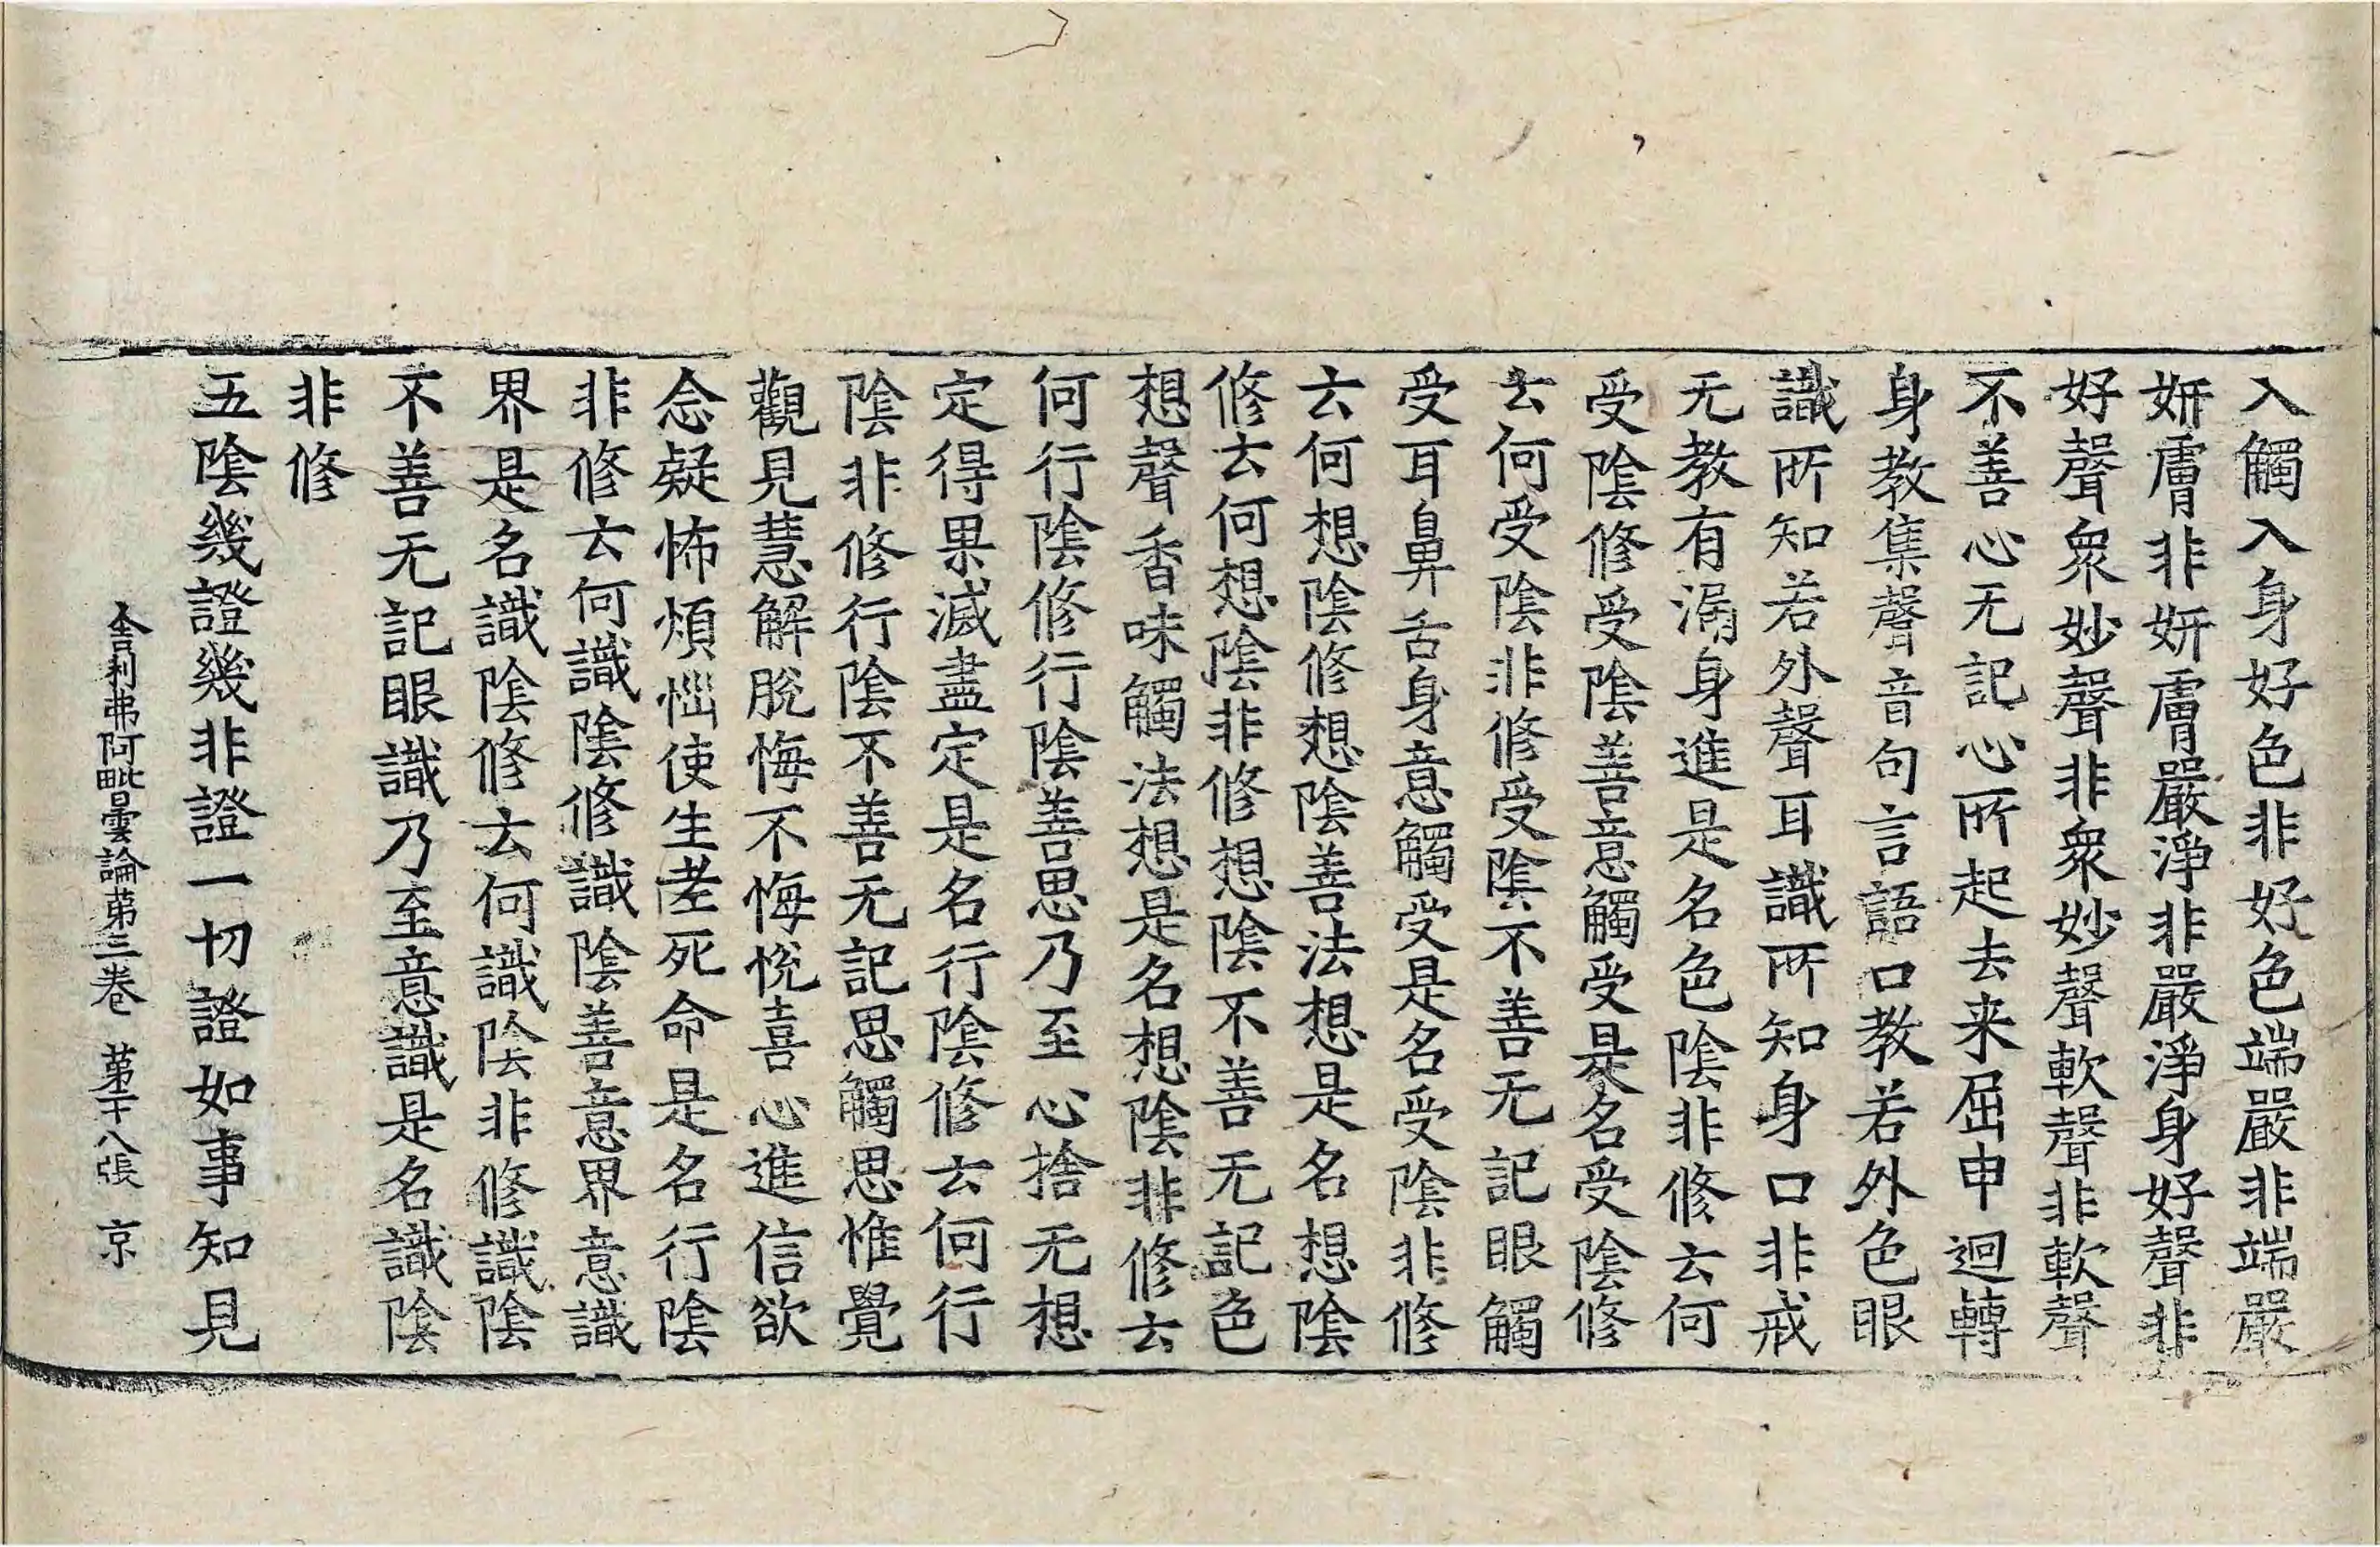 入觸入身好色非好色端嚴非端嚴
妍膚非妍膚嚴淨非嚴淨身好聲非
好聲衆妙聲非衆妙聲軟聲非軟聲
不善心无記心所起去来屈申迴轉
身教集聲音句言語口教若外色眼
識所知若外聲耳識所知身口非戒
无教有漏身進是名色陰非修云何
受陰修受陰善意觸受是名受陰修
云何受陰非修受陰不善无記眼觸
受耳鼻舌身意觸受是名受陰非修
云何想陰修想陰善法想是名想陰
修云何想陰非修想陰不善无記色
想聲香味觸法想是名想陰非修云
何行陰修行陰善思乃至心捨无想
定得果滅盡定是名行陰修云何行
陰非修行陰不善无記思觸思惟覺
觀見慧解脫悔不悔悅喜心進信欲
念疑怖煩惱使生老死命是名行陰
非修云何識陰修識陰善意界意識
界是名識陰修云何識陰非修識陰
不善无記眼識乃至意識是名識陰
非修
五陰幾證幾非證一切證如事知見
舍利弗阿毗曇論第三卷 第十八張 京